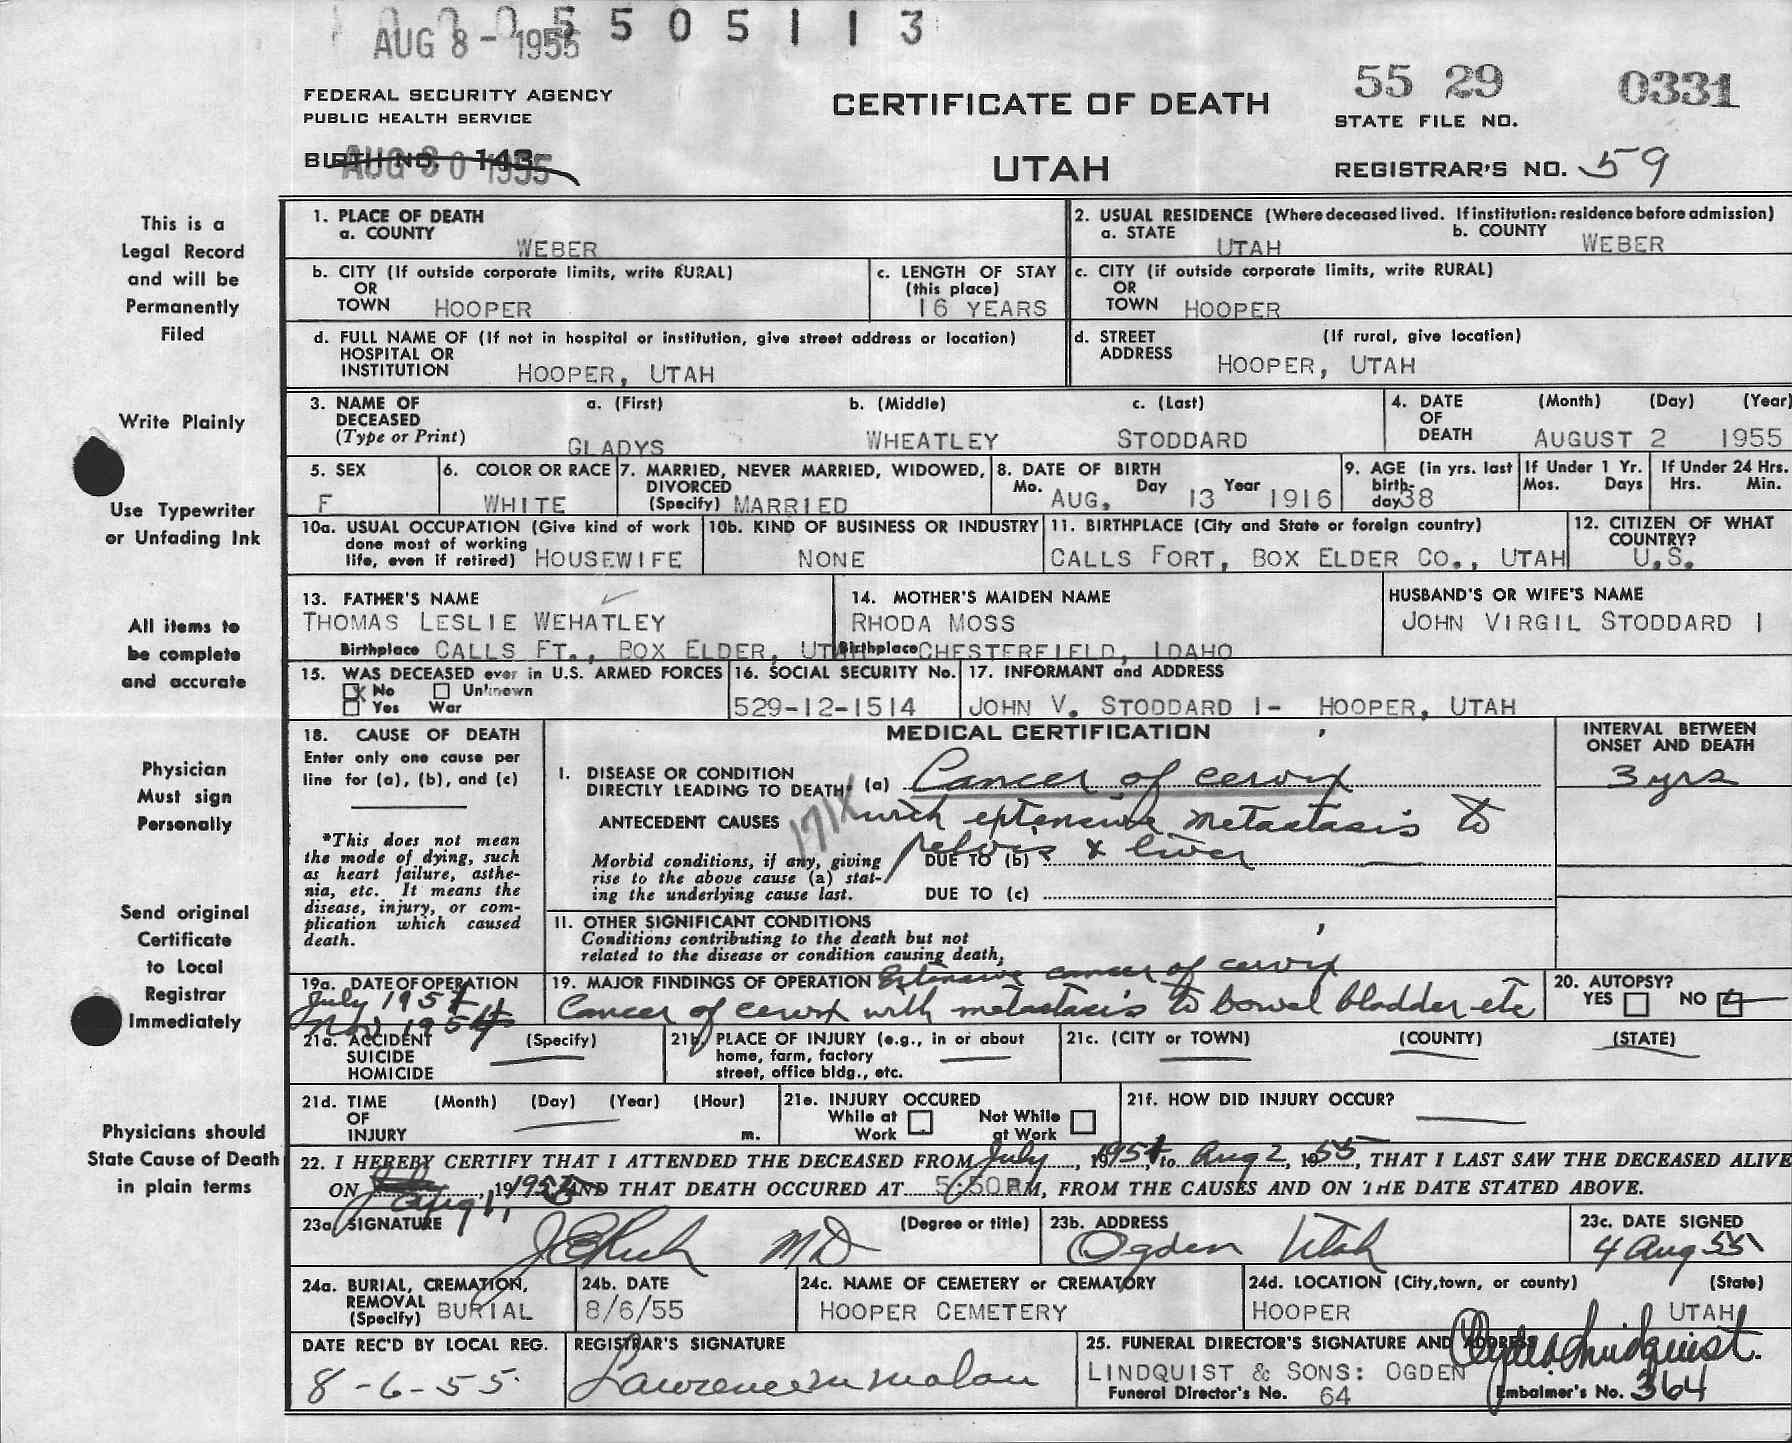 5 5 0 5 1 1 3
AUG 8 - 1955
55 29 0331
FEDERAL SECURITY AGENCY
PUBLIC HEALTH SERVICE
CERTIFICATE OF DEATH
STATE FILE NO.
BIRTH NO. 143
AUG 30 1955
UTAH
REGISTRAR'S NO. 59
This is a
Legal Record
and will be
Permanently
Filed
Write Plainly
Use Typewriter
or Unfading Ink
All items to
be complete
and accurate
Physician
Must sign
Personally
Send original
Certificate
to Local
Registrar
Immediately
Physicians should
State Cause of Death
in plain terms
1. PLACE OF DEATH
a. COUNTY
WEBER
2. USUAL RESIDENCE (Where deceased lived. If institution: residence before admission)
a. STATE UTAH b. COUNTY WEBER
b. CITY (If outside corporate limits, write RURAL)
OR
TOWN HOOPER
c. LENGTH OF STAY
(this place)
16 YEARS
c. CITY (if outside corporate limits, write RURAL)
OR
TOWN HOOPER
d. FULL NAME OF (If not in hospital or institution, give street address or location)
HOSPITAL OR
INSTITUTION HOOPER, UTAH
d. STREET (If rural, give location)
ADDRESS HOOPER, UTAH
3. NAME OF a. (First) b. (Middle) c. (Last)
DECEASED
(Type or Print) GLADYS WHEATLEY STODDARD
4. DATE (Month) (Day) (Year)
OF
DEATH AUGUST 2 1955
5. SEX
F
6. COLOR OR RACE
WHITE
7. MARRIED, NEVER MARRIED, WIDOWED,
DIVORCED
(Specify) MARRIED
8. DATE OF BIRTH
Mo. AUG, Day 13 Year 1916
9. AGE (in yrs. last
birth-
day 38
If Under 1 Yr.
Mos. Days
If Under 24 Hrs.
Hrs. Min.
10a. USUAL OCCUPATION (Give kind of work
done most of working
life, even if retired) HOUSEWIFE
10b. KIND OF BUSINESS OR INDUSTRY
NONE
11. BIRTHPLACE (City and State or foreign country)
CALLS FORT, BOX ELDER CO., UTAH
12. CITIZEN OF WHAT
COUNTRY?
U.S.
13. FATHER'S NAME
THOMAS LESLIE WEHATLEY
Birthplace CALLS FT., BOX ELDER, UTAH
14. MOTHER'S MAIDEN NAME
RHODA MOSS
Birthplace CHESTERFIELD, IDAHO
HUSBAND'S OR WIFE'S NAME
JOHN VIRGIL STODDARD I
15. WAS DECEASED ever in U.S. ARMED FORCES
X No Unknown
Yes War
16. SOCIAL SECURITY No.
529-12-1514
17. INFORMANT and ADDRESS
JOHN V. STODDARD I- HOOPER, UTAH
18. CAUSE OF DEATH
Enter only one cause per
line for (a), (b), and (c)
*This does not mean
the mode of dying, such
as heart failure, asthe-
nia, etc. It means the
disease, injury, or com-
plication which caused
death.
MEDICAL CERTIFICATION
INTERVAL BETWEEN
ONSET AND DEATH
I. DISEASE OR CONDITION
DIRECTLY LEADING TO DEATH* (a) Cancer of cervix 3 yrs
171X
ANTECEDENT CAUSES with extensive metastasis to
Morbid conditions, if any, giving DUE TO (b) pelvis & liver
rise to the above cause (a) stat-
ing the underlying cause last. DUE TO (c)
II. OTHER SIGNIFICANT CONDITIONS
Conditions contributing to the death but not
related to the disease or condition causing death,
19a. DATE OF OPERATION
July 1954
Nov 1954
19. MAJOR FINDINGS OF OPERATION Extensive cancer of cervix
Cancer of cervix with metastasis to bowel bladder etc
20. AUTOPSY?
YES NO
21a. ACCIDENT (Specify)
SUICIDE
HOMICIDE
21b. PLACE OF INJURY (e.g., in or about
home, farm, factory
street, office bldg., etc.
21c. (CITY or TOWN) (COUNTY) (STATE)
21d. TIME (Month) (Day) (Year) (Hour)
OF
INJURY m.
21e. INJURY OCCURED
While at Not While
Work at Work
21f. HOW DID INJURY OCCUR?
22. I HEREBY CERTIFY THAT I ATTENDED THE DECEASED FROM July, 1954, to Aug 2, 1955, THAT I LAST SAW THE DECEASED ALIVE
ON Aug 1, 1955 AND THAT DEATH OCCURED AT 5:50 P.M, FROM THE CAUSES AND ON THE DATE STATED ABOVE.
23a. SIGNATURE (Degree or title)
MD
23b. ADDRESS
Ogden Utah
23c. DATE SIGNED
4 Aug 55
24a. BURIAL, CREMATION,
REMOVAL
(Specify) BURIAL
24b. DATE
8/6/55
24c. NAME OF CEMETERY or CREMATORY
HOOPER CEMETERY
24d. LOCATION (City, town, or county) (State)
HOOPER UTAH
DATE REC'D BY LOCAL REG.
8-6-55
REGISTRAR'S SIGNATURE
Lawrence M Malan
25. FUNERAL DIRECTOR'S SIGNATURE AND ADDRESS
LINDQUIST & SONS: OGDEN
Funeral Director's No. 64
Embalmer's No. 364